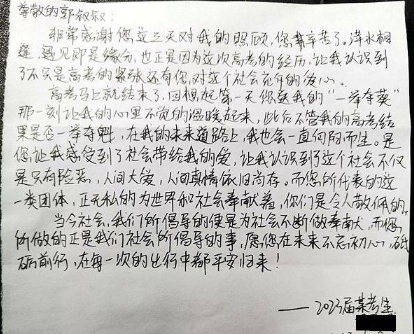 尊敬的郭叔叔：
非常感谢您这三天对我的照顾，您辛苦了。萍水相
逢，遇见即是缘分，也正是因为这次高考的经历，让我认识到
了不只是高考的紧张还有您，对这个社会充伴的爱心。
高考马上就结束了，回想起第一天您送我的“一举夺葵”
那一刻让我的心里不觉的温暖起来，此后不管我的高考结
果是否一举夺魁，在我的未来道路上，我也会一直向阳而生。是
您，让我感受到了社会带给我的爱，让我认识到了这个社会不仅
是只有险恶，人间大爱，人间真情依旧尚存。而您所代表的这
一类团体，正无私的为世界和社会奉献着，你们是令人敬佩的。
当今社会，我们所倡导的便是为社会不断做奉献，而您，
所做的正是我们社会所倡导的事，愿您在未来不忘初心，砥
砺前行，在每一次的出行中都平安归来！
——2023届某考生